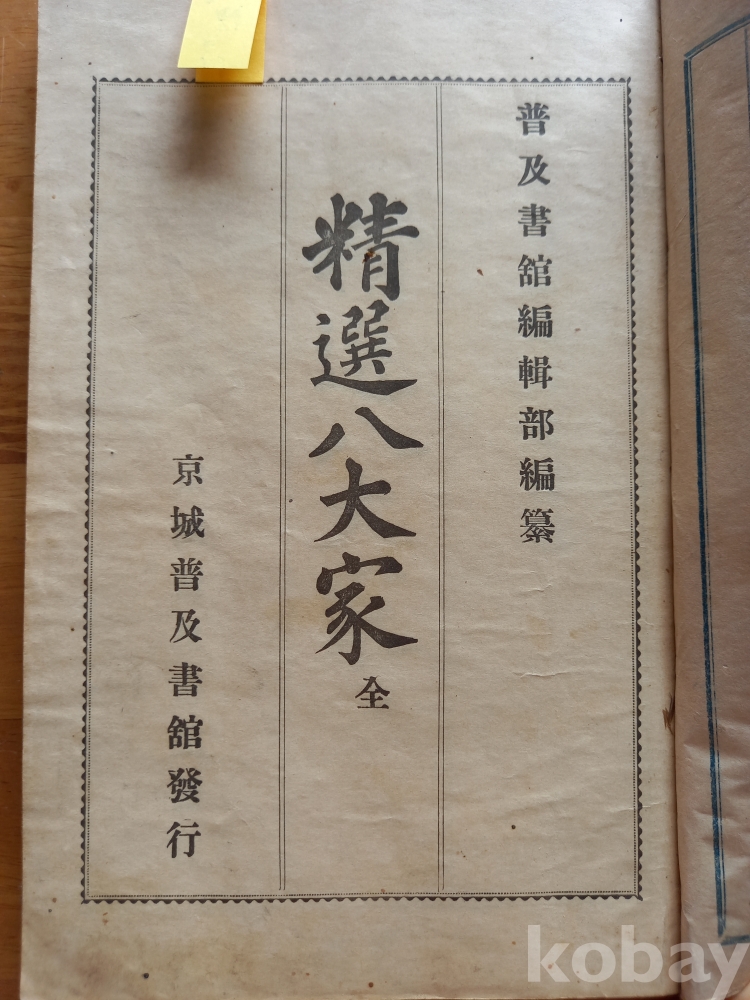 普及書舘編輯部編纂
精選八大家 全
京城普及書舘發行
kobay